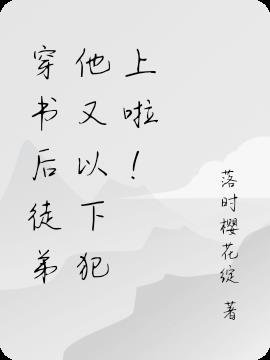 穿书后徒弟
他又以下犯
上啦！
落时樱花绽 著